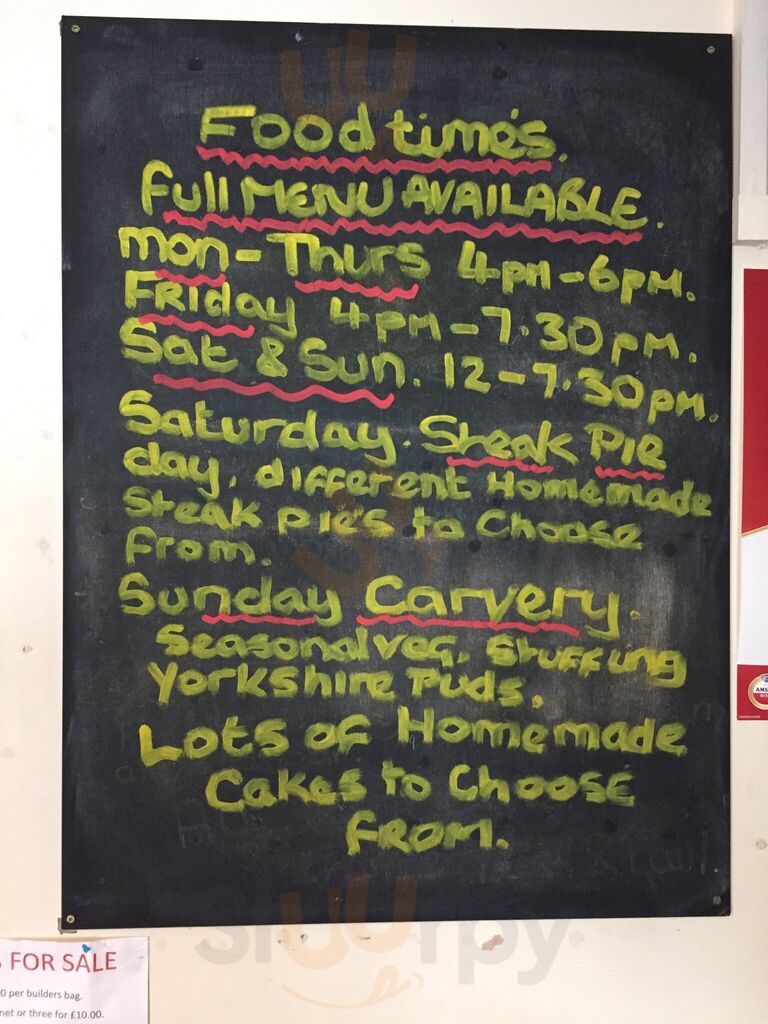 Food time's.
Full MENU AVAILABLE.
mon - Thurs 4pm - 6pm.
FRIday 4pm - 7.30pm.
Sat & Sun. 12 - 7.30pm.
Saturday. Steak Pie
day, different Homemade
Steak pie's to Choose
From.
Sunday Carvery.
Seasonal veg, Stuffing
Yorkshire Puds.
Lots of Homemade
Cakes to Choose
FROM.
FOR SALE
0 per builders bag.
net or three for £10.00.
Sluurpy